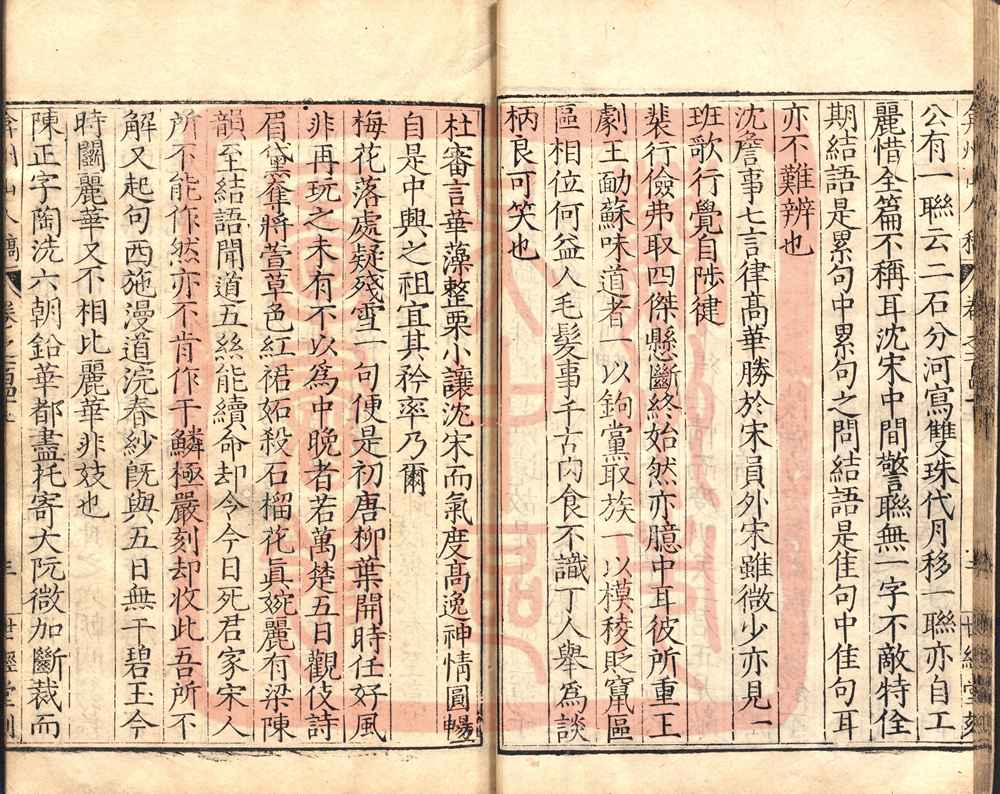 公有一聯云二石分河寫雙珠代月移一聯亦自工
麗惜全篇不稱耳沈宋中間警聯無一字不敵特佺
期結語是累句中累句之問結語是佳句中佳句耳
亦不難辨也
沈詹事七言律高華勝於宋員外宋雖微少亦見一
班歌行覺自陟健
裴行儉弗取四傑懸斷終始然亦臆中耳彼所重王
劇王勔蘇味道者一以鉤黨取族一以模稜貶竄區
區相位何益人毛髮事千古肉食不識丁人舉為談
柄良可笑也
杜審言華藻整栗小讓沈宋而氣度高逸神情圓暢
自是中興之祖宜其矜率乃爾
梅花落處疑殘雪一句便是初唐柳葉開時任好風
非再玩之未有不以為中晚者若萬楚五日觀伎詩
眉黛奪將萱草色紅裙妬殺石榴花真婉麗有梁陳
韻至結語聞道五絲能續命却令今日死君家宋人
所不能作然亦不肯作于鱗極嚴刻却收此吾所不
解又起句西施漫道浣春紗既與五日無干碧玉今
時鬭麗華又不相比麗華非妓也
陳正字陶洗六朝鉛華都盡托寄大阮微加斷裁而